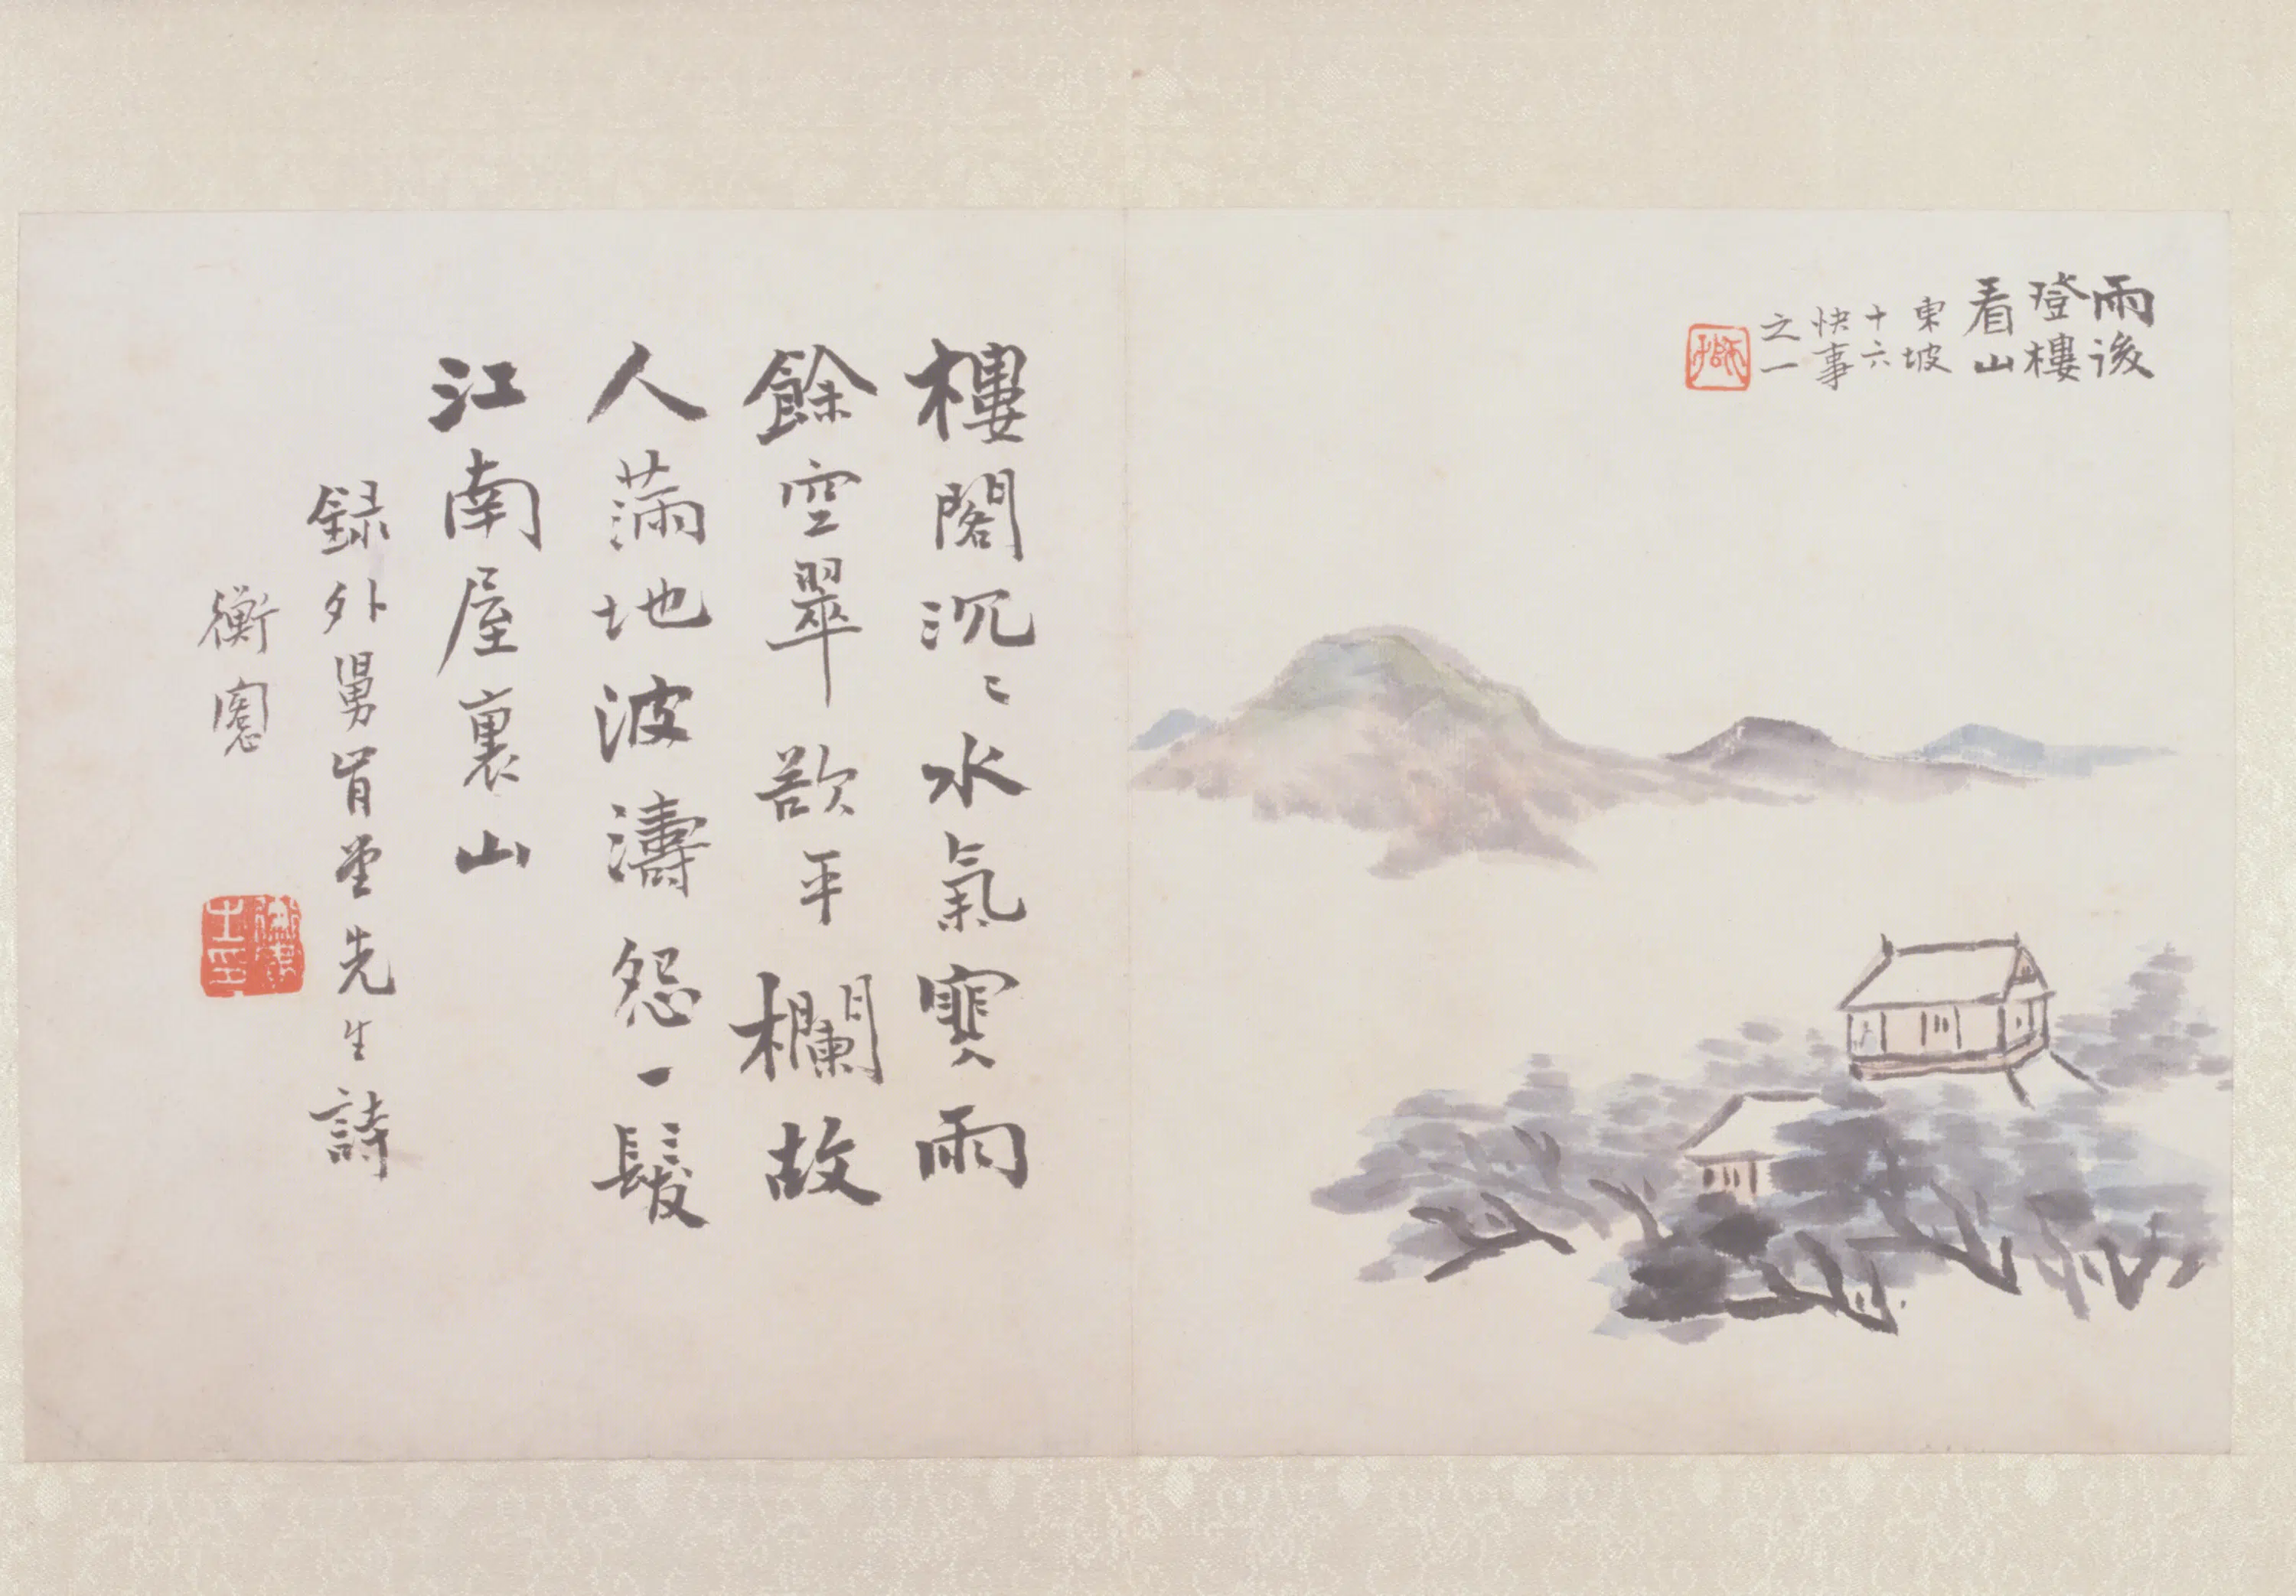 雨後
登樓
看山
東坡
十六
快事
之一
樓閣沉〻水氣寒雨
餘空翠欲平欄故
人滿地波濤怨一髮
江南屋裏山
録外舅肯堂先生詩
衡愙